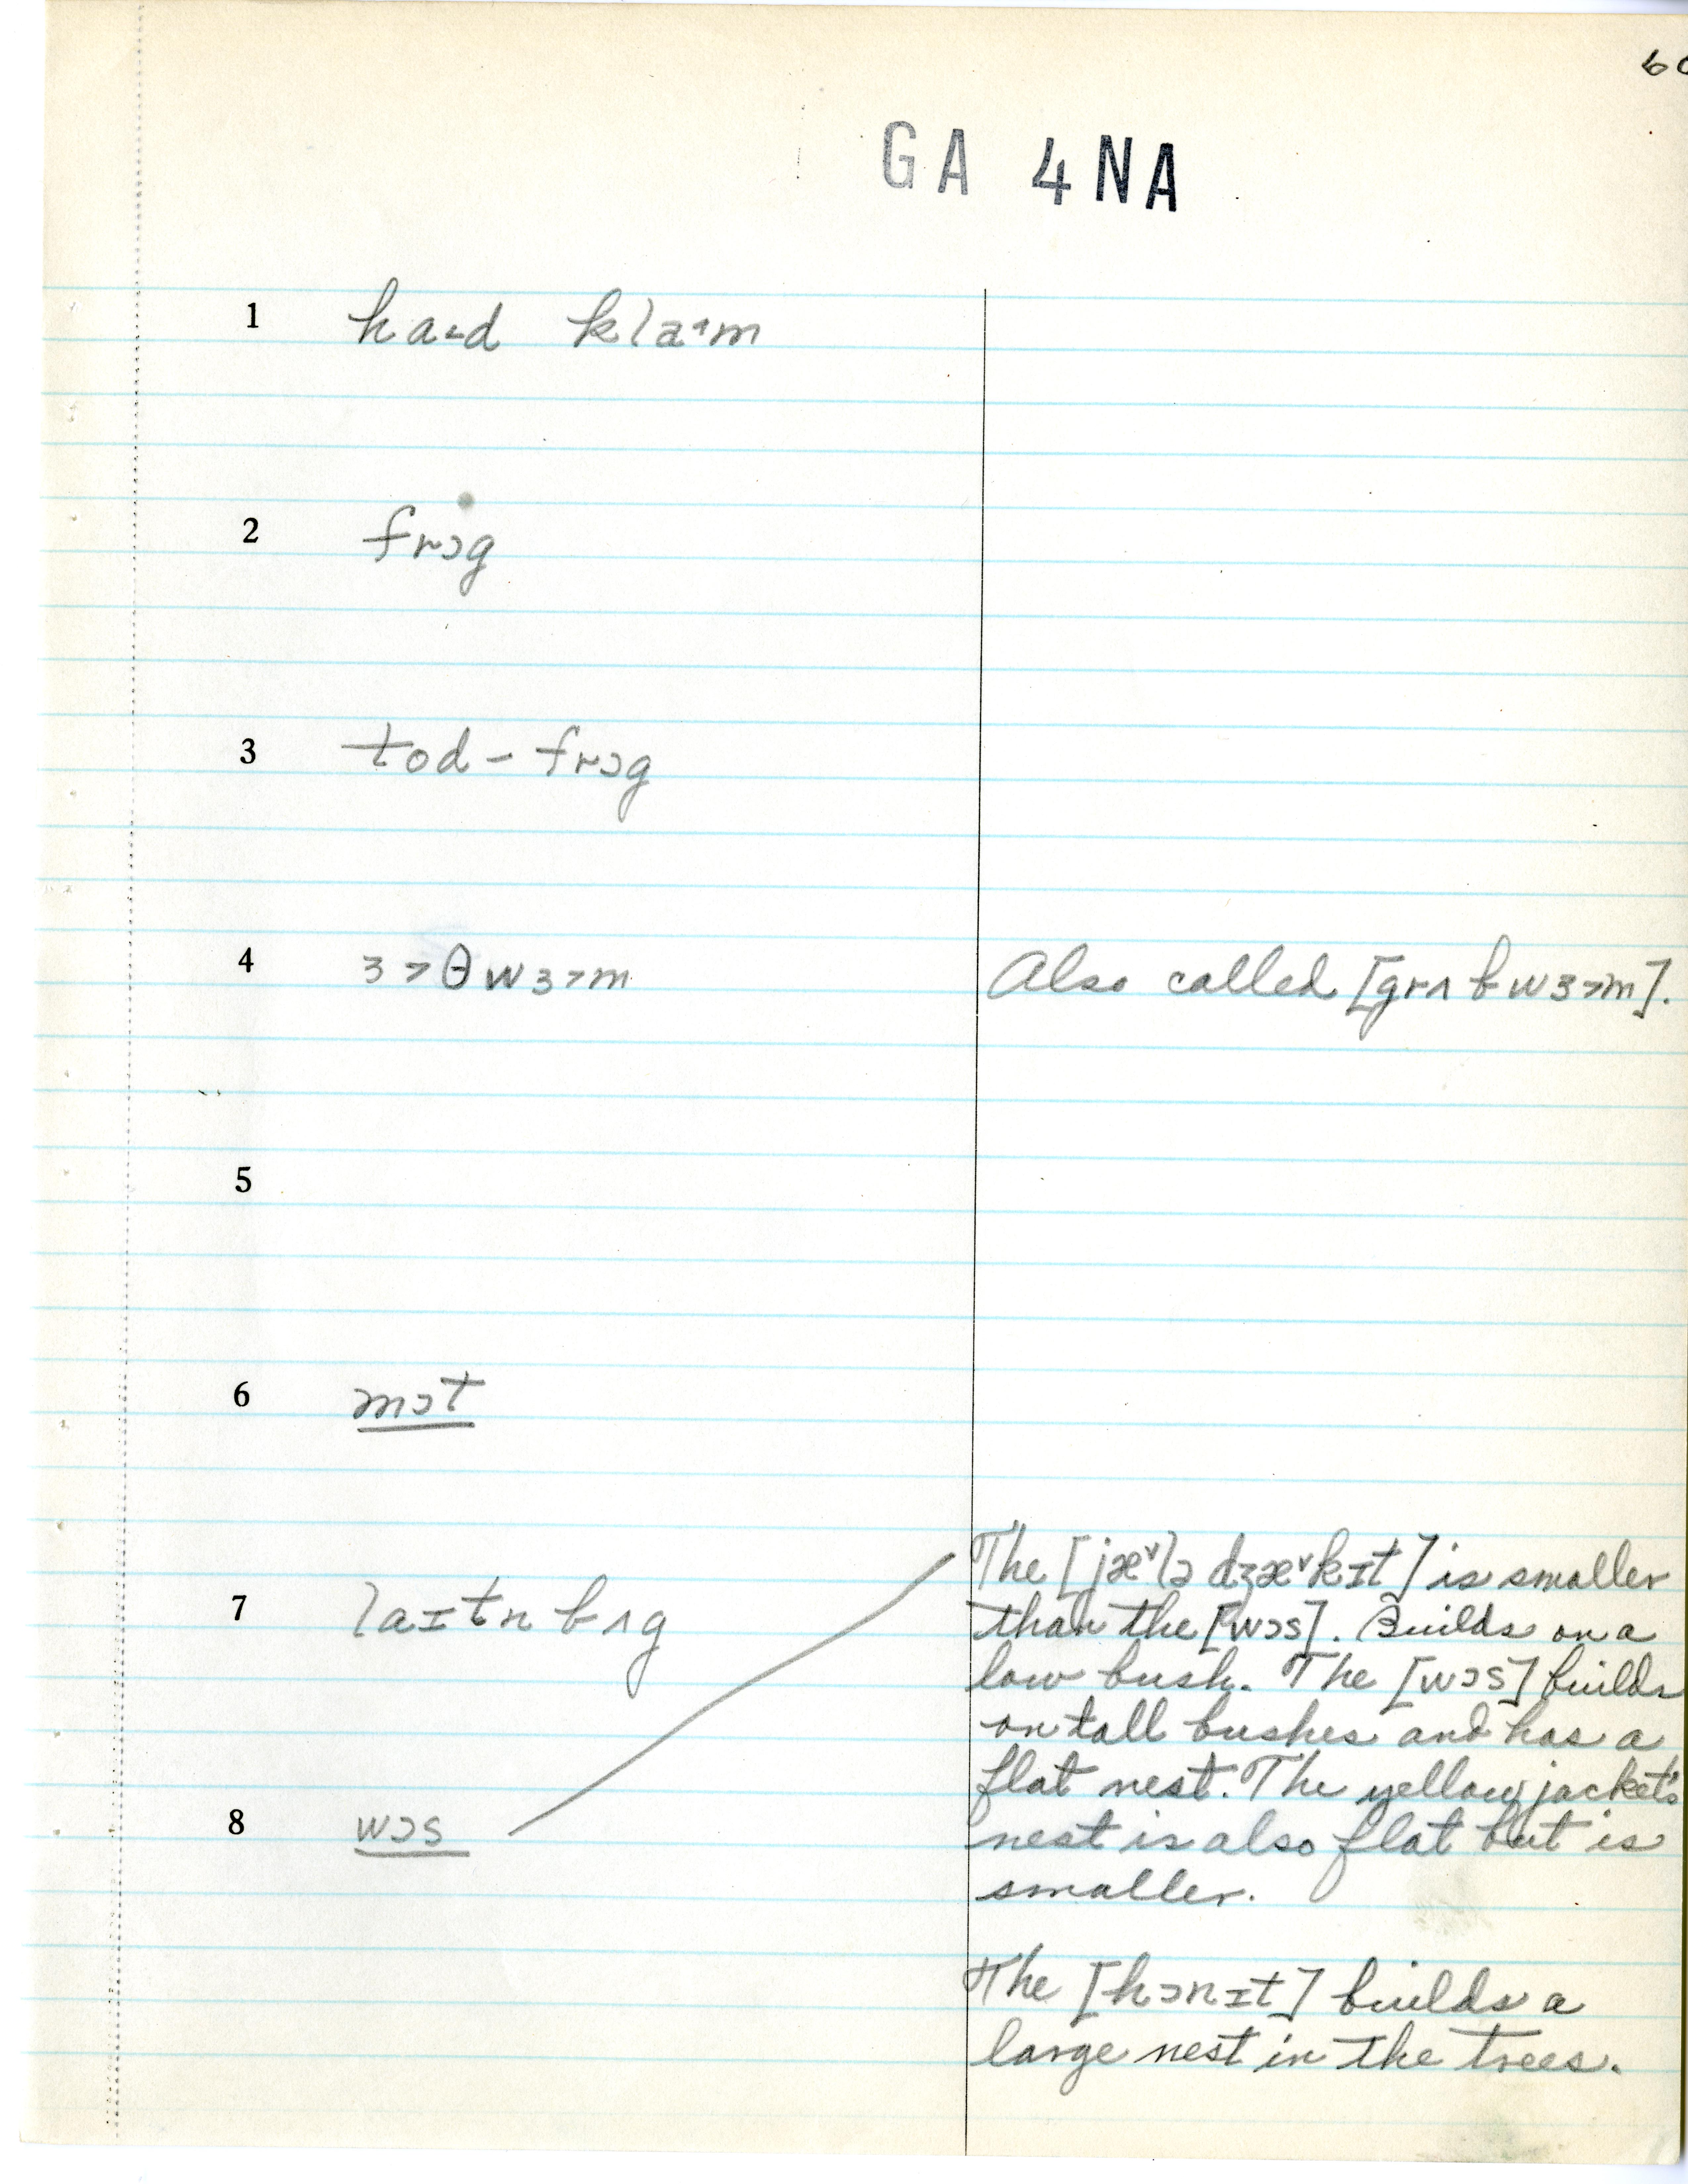 60
GA 4NA
1 ha˔d kla˔m
2 frɔg
3 tod - frɔg
4 ɜ˃θwɜ˃m Also called [grʌbwɜ˃m].
5
6 mɔt
7 laɪtnbʌg
8 wɔs
The [jæ˅lə dʒæ˅kɪt] is smaller
than the [wɔs]. Builds on a
low bush. The [wɔs] builds
on tall bushes and has a
flat nest. The yellow jacket's
nest is also flat but is
smaller.
The [hɔnɪt] builds a
large nest in the trees.